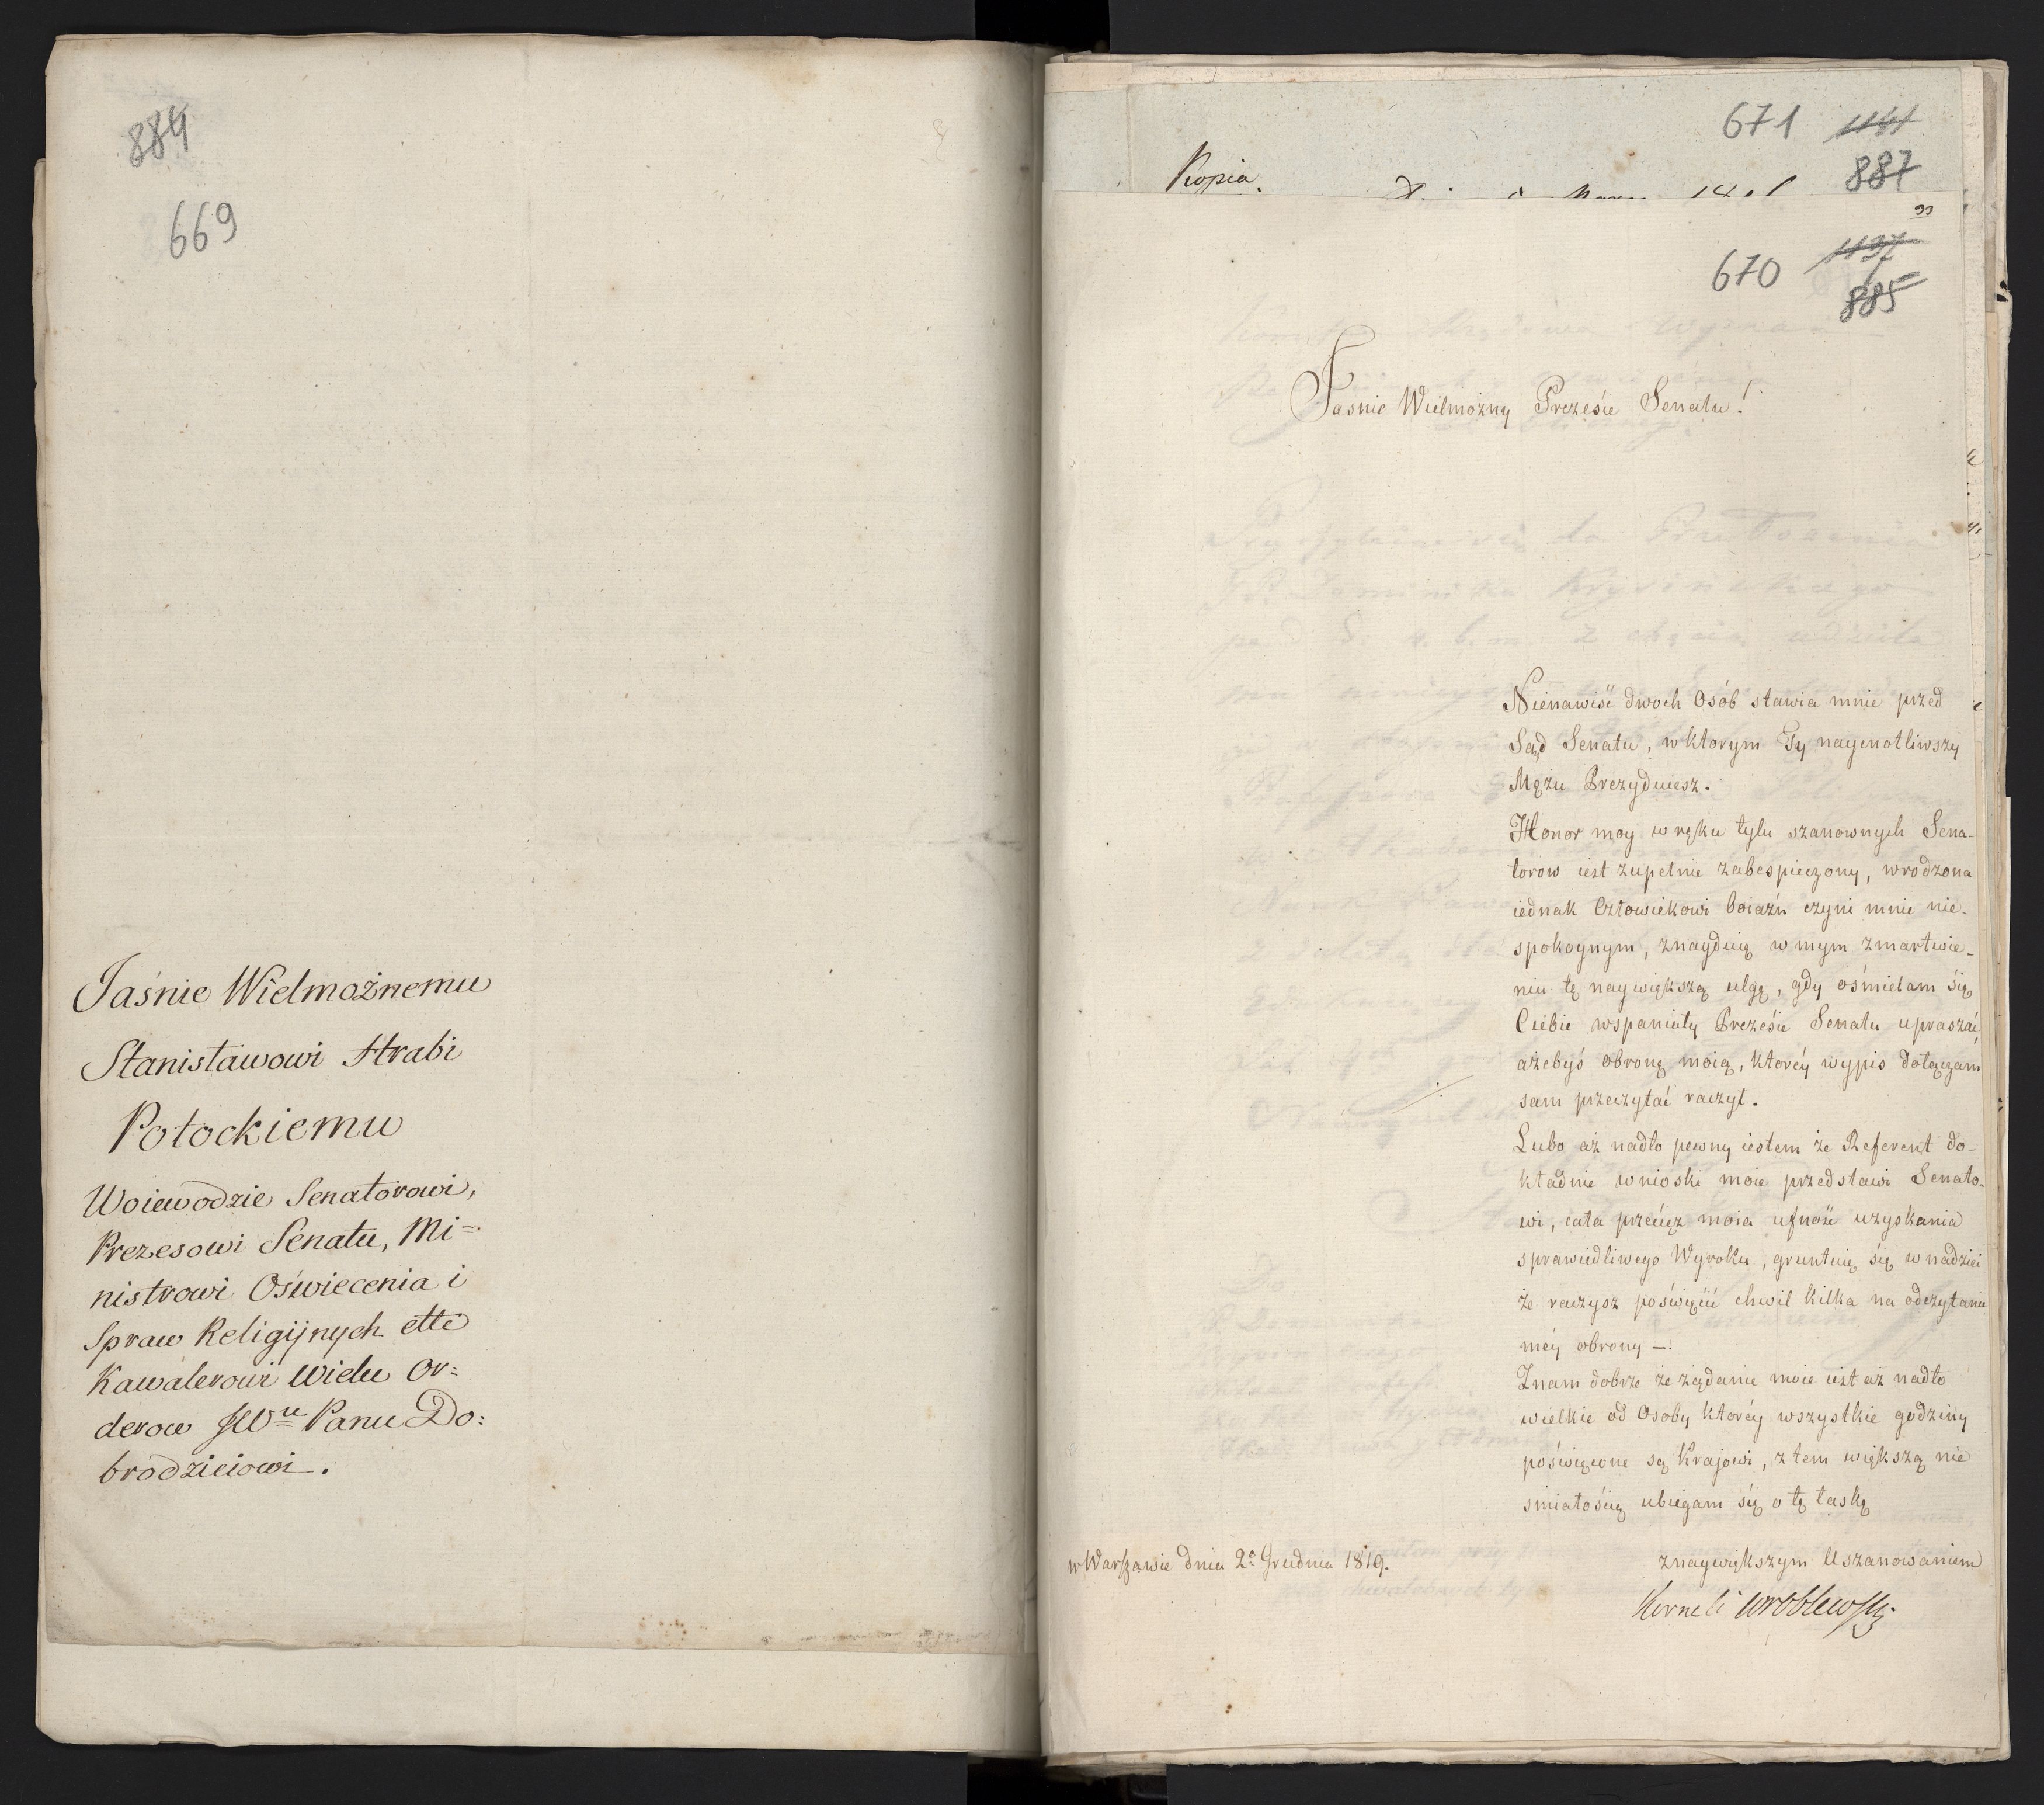 884
669
Jaśnie Wielmożnemu
Stanisławowi Hrabi
Potockiemu
Woiewodzie Senatorowi,
Prezesowi Senatu, Mi=
nistrowi Oświecenia i
Spraw Religijnych ettc
Kawalerowi wielu Or=
derow JW Panu Do=
brodzieiowi.
671 1141
887
Kopia.
670 1137
885
Jasnie Wielmożny Prezesie Senatu!
Nienawiść dwoch Osób stawia mnie przed
Sąd Senatu, w ktorym Ty naycnotliwszy
Mężu Prezyduiesz.
Honor moy w ręku tylu szanownych Sena-
torow iest zupełnie zabespieczony, wrodzona
iednak Człowiekowi boiaźń czyni mnie nie-
spokoynym, znayduię w mym zmartwie-
niu tę naywiększą ulgę, gdy ośmielam się
Ciebie wspaniały Prezesie Senatu upraszać,
ażebyś obronę moią, ktoréy wypis dołączam
sam przeczytać raczył.
Lubo aż nadto pewny iestem że Referent do-
kładnie wnioski moie przedstawi Senato-
wi, cała przecięż moia ufność uzyskania
sprawiedliwego Wyroku, gruntuię się w nadziei
że raczysz poświęcić chwil kilka na odczytanie
méy obrony —
Znam dobrze że żądanie moie iest aż nadto
wielkie od Osoby ktoréy wszystkie godziny
poświęcone są Krajowi, z tem większą nie
śmiałością ubiegam się o tę łaskę
w Warszawie dnia 2° Grudnia 1819.
z naywiększym Uszanowaniem
Korneli Wroblewski